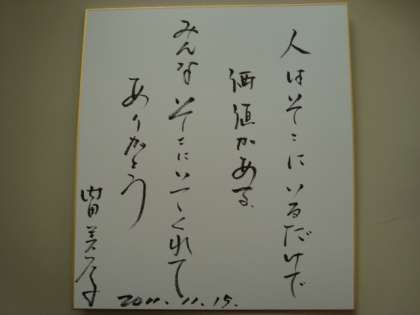 人はそこにいるだけで
価値がある
みんなそこにいてくれて
ありがとう
美子
2011.11.15.